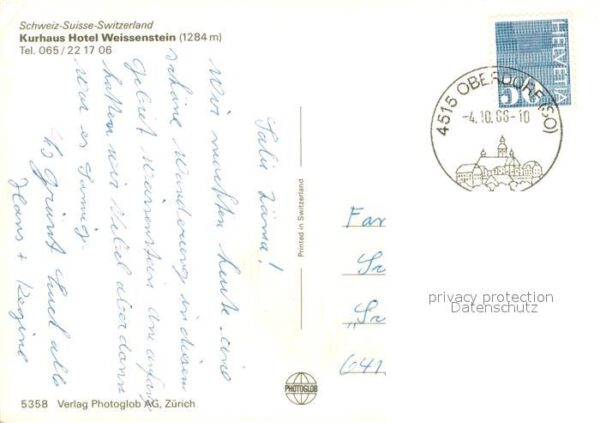 Schweiz-Suisse-Switzerland
Kurhaus Hotel Weissenstein (1284 m)
Tel. 065/22 17 06
HELVETIA
50
4515 OBERDORF (SO)
-4.10.86-10
Salü zäma!
Wir machten heute eine
schöne Wanderung in diesem
Gebiet Weissenstein. Am anfang
hatten wir Nebel aber dann
war es sonnig.
Es grüsst Euch alle
Hans + Regine
Printed in Switzerland
Fam
privacy protection
Datenschutz
PHOTOGLOB
5358 Verlag Photoglob AG, Zürich